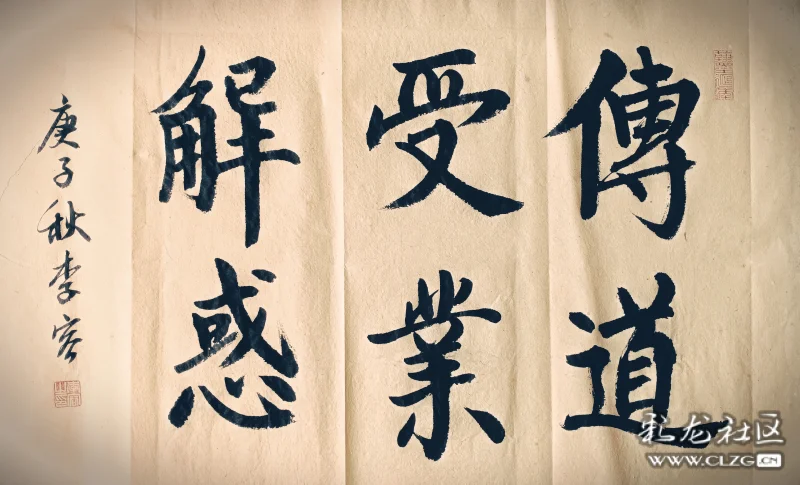 傳道
受業
解惑
庚子秋李容
彩龙社区
WWW.CLZG.CN